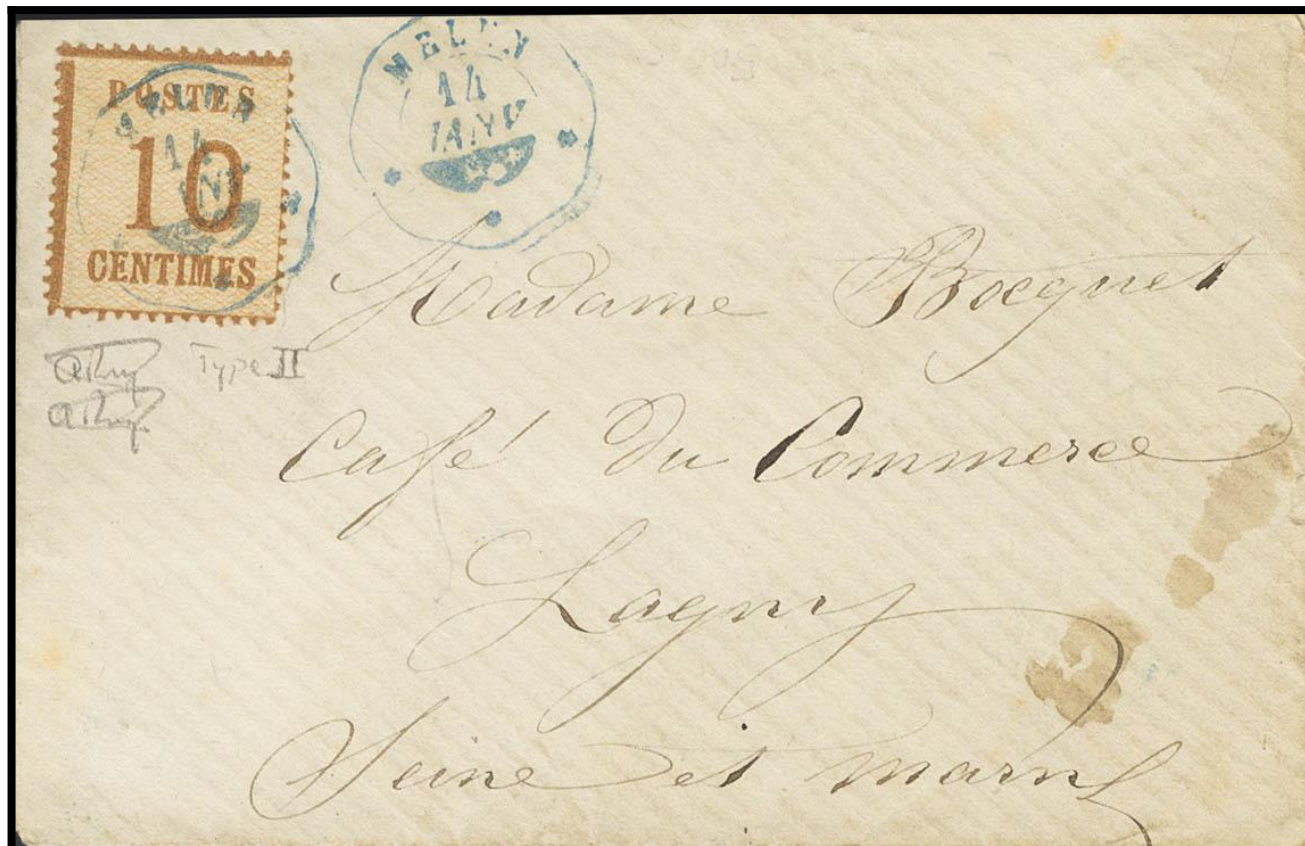 POSTES
10
CENTIMES
14
14
JANV
Type II
Madame Bocquet
Café du Commerce
Lagny
Seine et marne